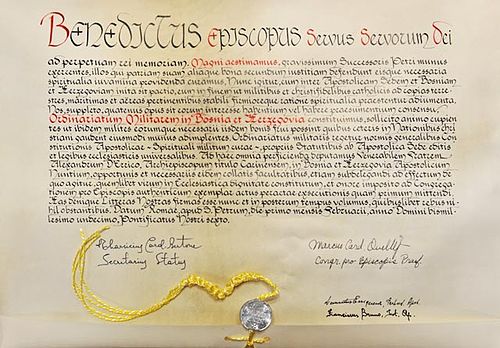 BENEDICTUS EPISCOPUS Servus Servorum Dei
ad perpetuam rei memoriam. Magni aestimamus, gravissimum Successoris Petri munus
exercentes, illos qui patriam suam aliaque bona secundum iustitiam defendunt eisque necessaria
spiritualia iuvamina providenda curamus. Nunc igitur, cum inter Apostolicam Sedem et Bosniam
et Herzegoviam inita sit pactio, cum in finem ut militibus et christifidelibus catholicis ad copias terre-
stres, maritimas et aëreas pertinentibus stabili firmioreque ratione spiritualia praestentur adiumenta.
Nos, suppleto, quatenus opus sit eorum interesse habentium vel habere praesumentium consensu,
Ordinariatum Militarem in Bosnia et Herzegovia constituimus, sollicito animo cupien
tes ut ibidem milites eorumque necessarii iisdem bonis frui possint quibus ceteris in Nationibus chri
stiani quidem eiusdem muneris adimplentes. Ordinariatus militaris regetur normis generalibus Con
stitutionis Apostolicae «Spirituali militum curae», propriis Statutis ab Apostolica Sede editis
et legibus ecclesiasticis universalibus. Ad haec omnia perficienda deputamus Venerabilem Fratrem
Alexandrum D'Errico, Archiepiscopum titulo Carinensem, in Bosnia et Herzegovia Apostolicum
Nuntium, opportunis et necessariis eidem collatis facultatibus, etiam subdelegandi ad effectum de
quo agitur, quemlibet virum in Ecclesiastica Dignitate constitutum, et onere imposito ad Congrega-
tionem pro Episcopis authenticum exemplar actus peractae exsecutionis quam primum mittendi.
Has denique Litteras Nostras firmas esse nunc et in posterum tempus volumus, quibuslibet rebus ni-
hil obstantibus. Datum Romae, apud S. Petrum, die primo mensis Februarii, anno Domini bismil-
lesimo undecimo, Pontificatus Nostri sexto.
Tharcisius Card. Bertone
Secretarius Status
Marcus Card Ouellet
Congr. pro Episcopis Praef.